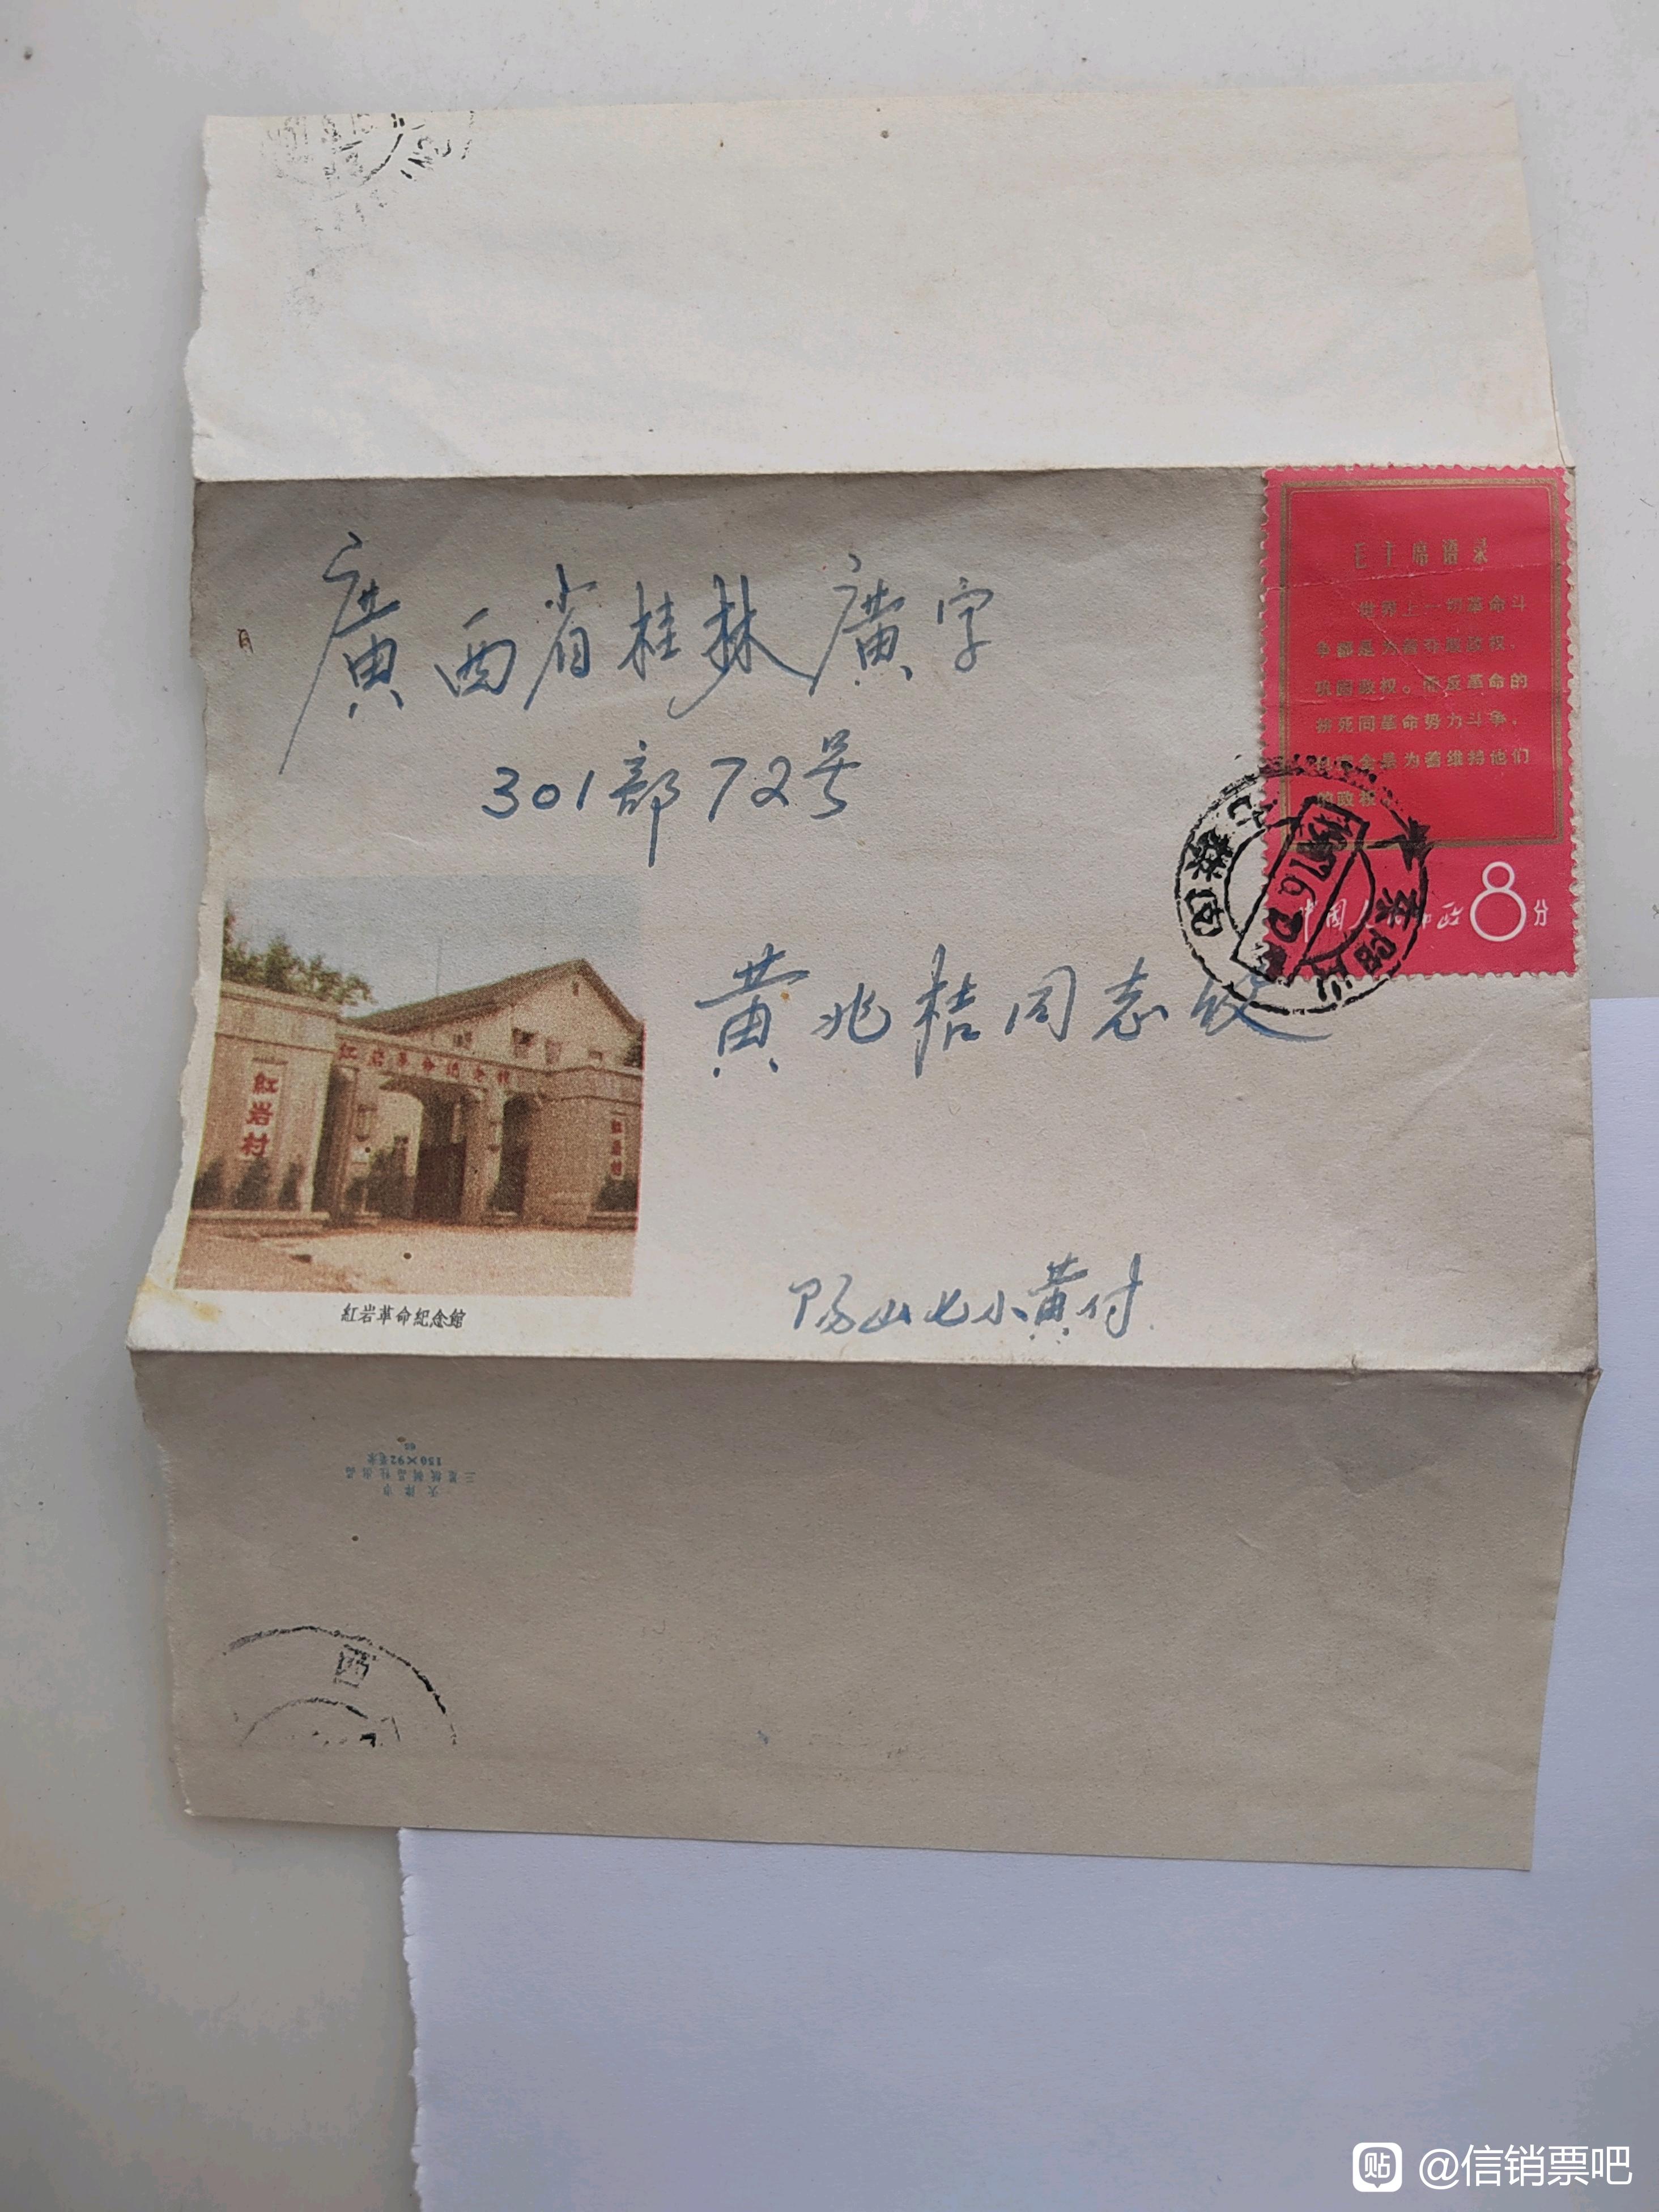 廣西省桂林廣字
301部72号
黄兆桔同志收
阳山七小黄付
毛主席语录
世界上一切革命斗
争都是为着夺取政权，
巩固政权。而反革命的
拚死同革命势力斗争，
也完全是为着维持他们
的政权。
中国人民邮政 8分
红岩革命纪念馆
紅岩村
紅岩革命紀念館
天津市
三星紙制品社出品
150×92毫米
西
@信销票吧